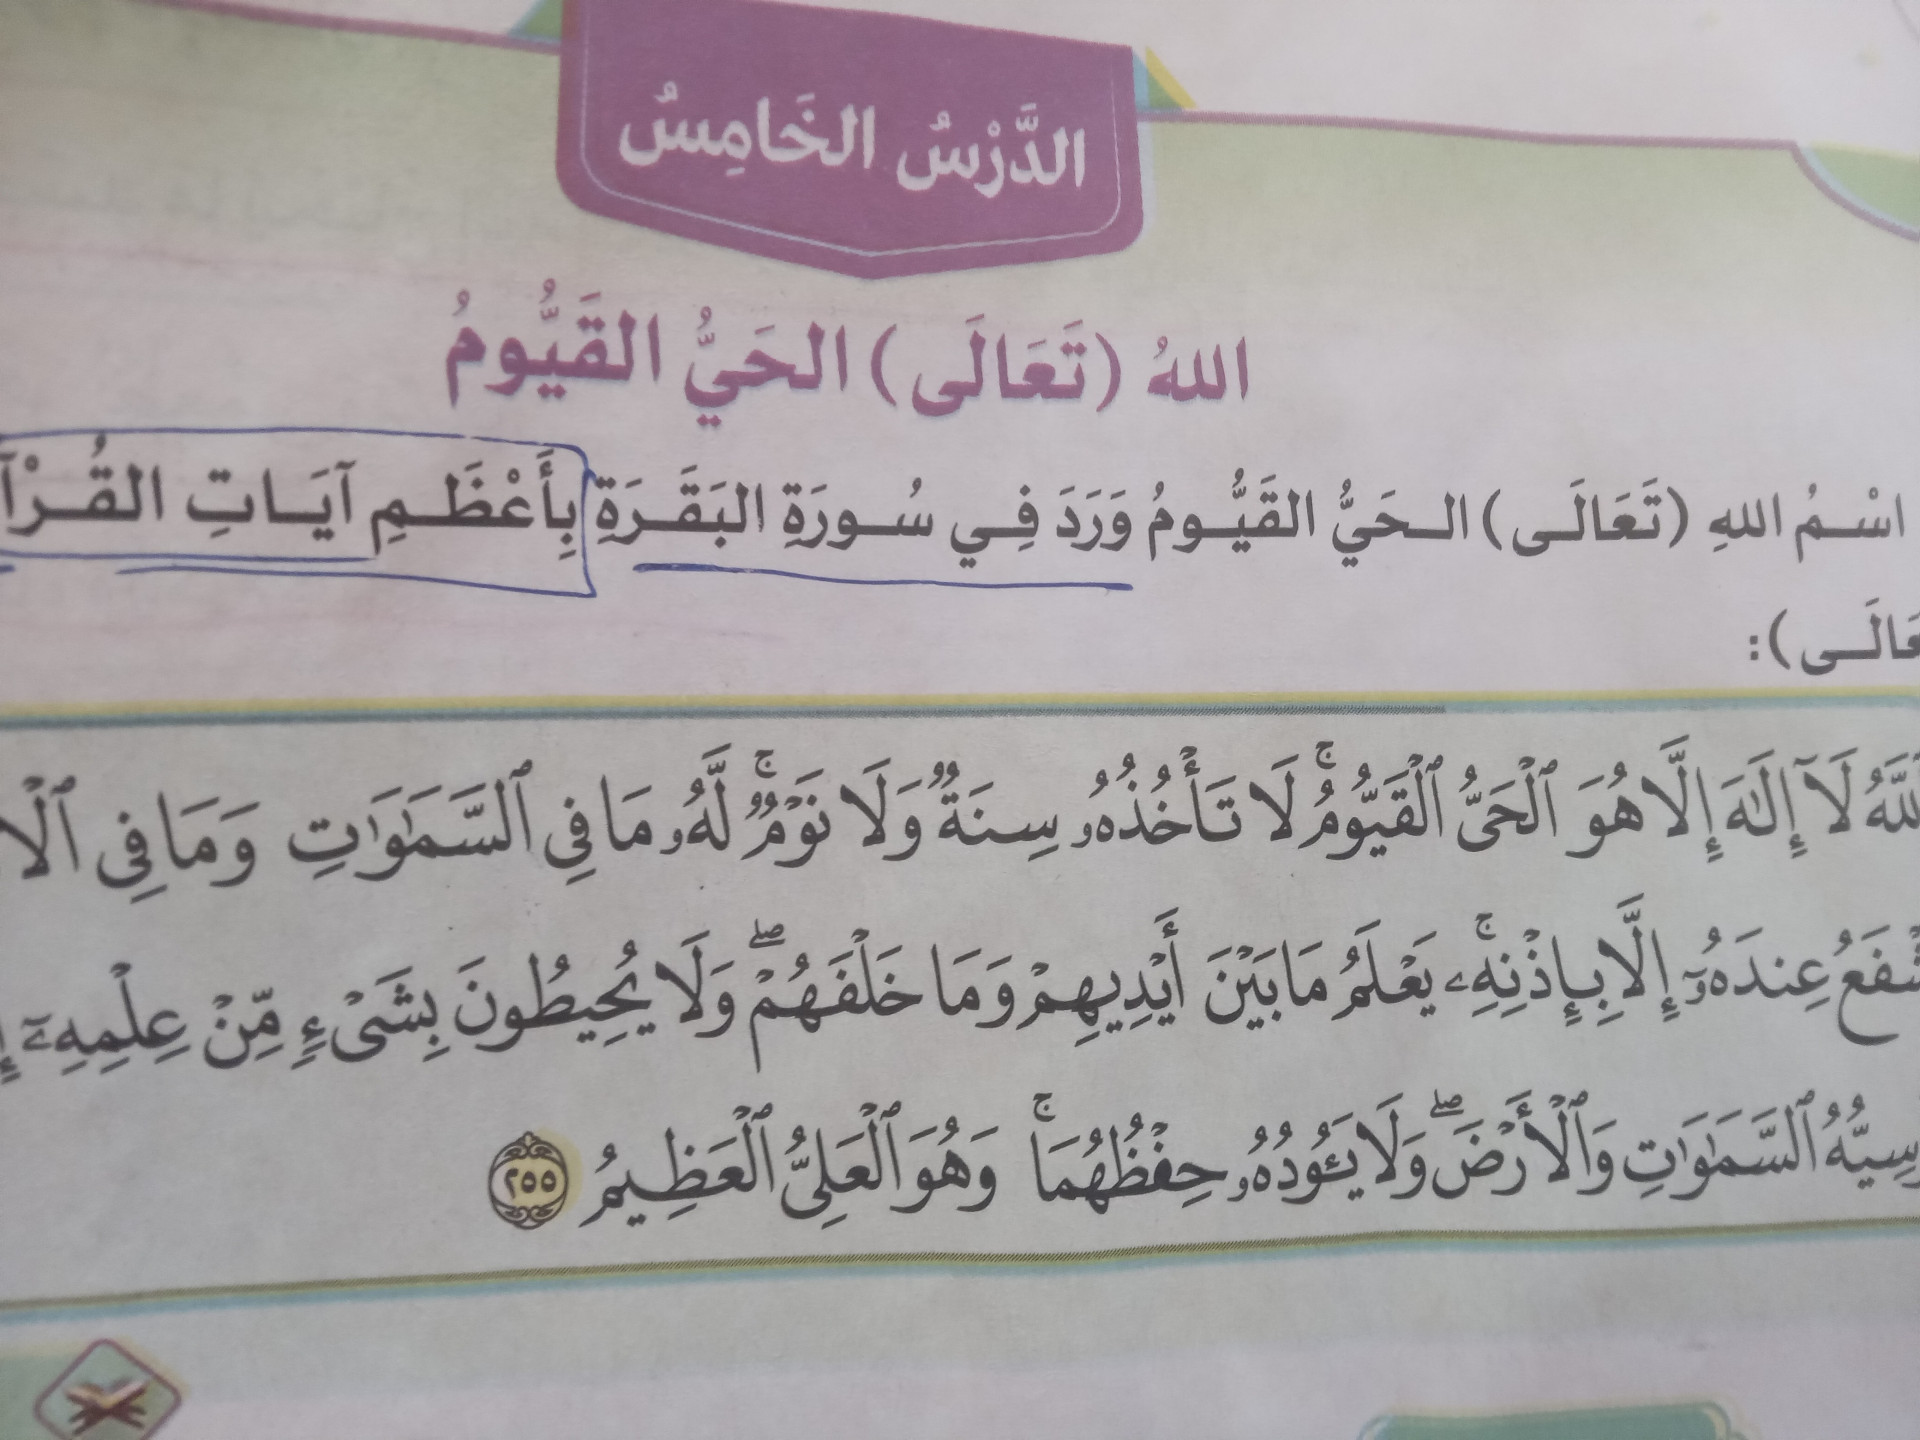 الدَّرْسُ الخَامِسُ
اللهُ (تَعَالَى) الحَيُّ القَيُّومُ
اسْمُ اللهِ (تَعَالَى) الحَيُّ القَيُّومُ وَرَدَ فِي سُورَةِ البَقَرَةِ بِأَعْظَمِ آيَاتِ
:(
لَآ إِلَٰهَ إِلَّا هُوَ ٱلْحَىُّ ٱلْقَيُّومُ ۚ لَا تَأْخُذُهُۥ سِنَةٌ وَلَا نَوْمٌ ۚ لَّهُۥ مَا فِى ٱلسَّمَٰوَٰتِ وَمَا فِى
عِندَهُۥٓ إِلَّا بِإِذْنِهِۦ ۚ يَعْلَمُ مَا بَيْنَ أَيْدِيهِمْ وَمَا خَلْفَهُمْ ۖ وَلَا يُحِيطُونَ بِشَىْءٍ مِّنْ عِلْمِهِۦٓ
ٱلسَّمَٰوَٰتِ وَٱلْأَرْضَ ۖ وَلَا يَـُٔودُهُۥ حِفْظُهُمَا ۚ وَهُوَ ٱلْعَلِىُّ ٱلْعَظِيمُ ٢٥٥